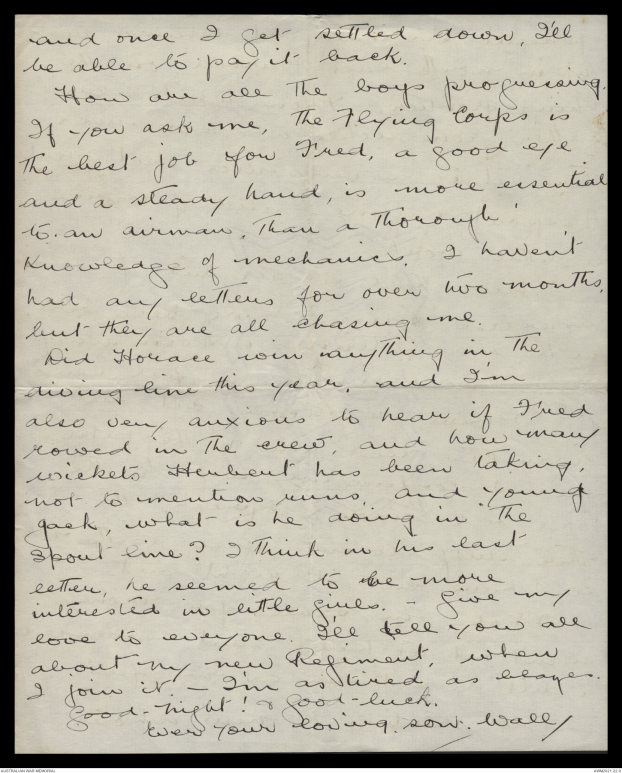 and once I get settled down, I'll
be able to pay it back.
How are all the boys progressing.
If you ask me, the Flying Corps is
the best job for Fred, a good eye
and a steady hand, is more essential
to an airman, than a thorough
knowledge of mechanics. I haven't
had any letters for over two months,
but they are all chasing me.
Did Horace win anything in the
diving line this year, and I'm
also very anxious to hear if Fred
rowed in the crew, and how many
wickets Herbert has been taking,
not to mention runs, and young
Jack, what is he doing in the
sport line? I think in his last
letter, he seemed to be more
interested in little girls. - Give my
love to everyone. I'll tell you all
about my new Regiment, when
I join it. - I'm as tired as blazes.
Good-night! & good-luck.
Ever your loving son. Wally
AUSTRALIAN WAR MEMORIAL